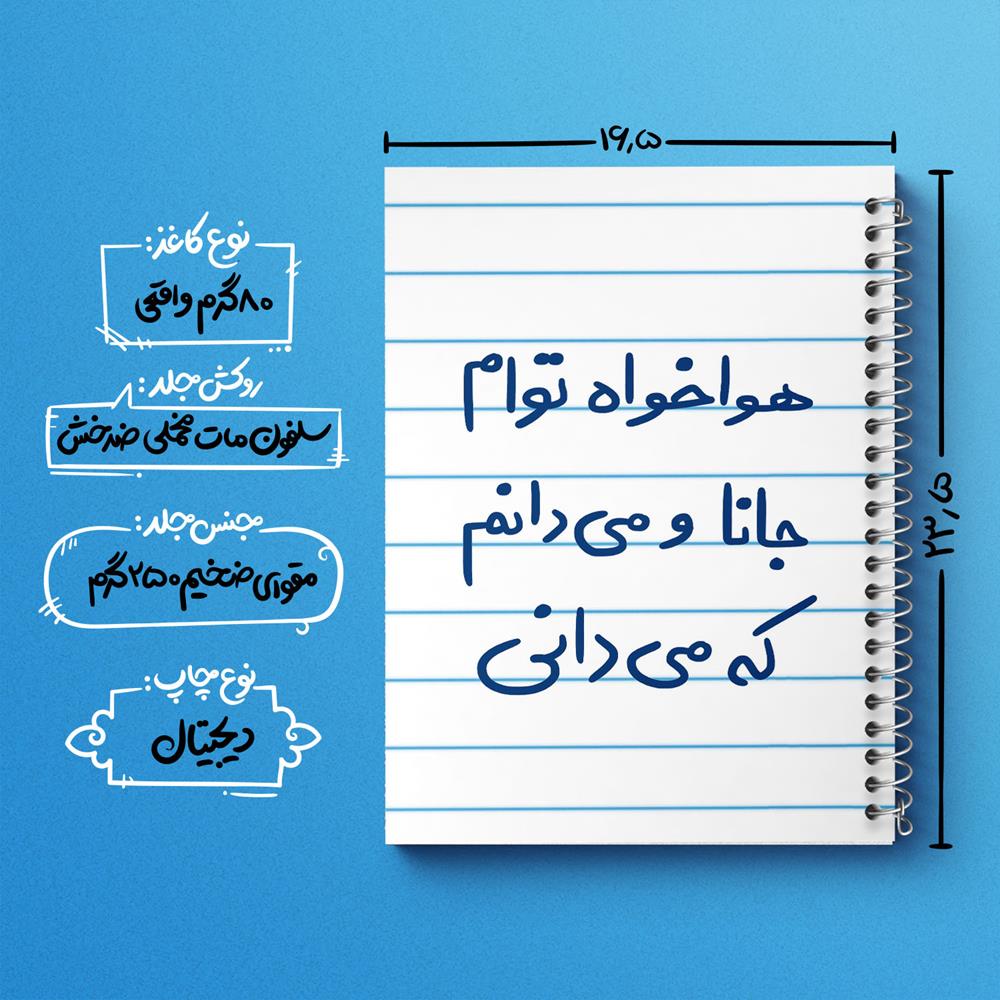 ۱۶٫۵
۲۳٫۵
هواخواه توام
جانا و می‌دانم
که می‌دانی
نوع کاغذ:
۸۰ گرم واقعی
روکش جلد:
سلفون مات مخملی ضدخش
جنس جلد:
مقوای ضخیم ۲۵۰ گرم
نوع چاپ:
دیجیتال